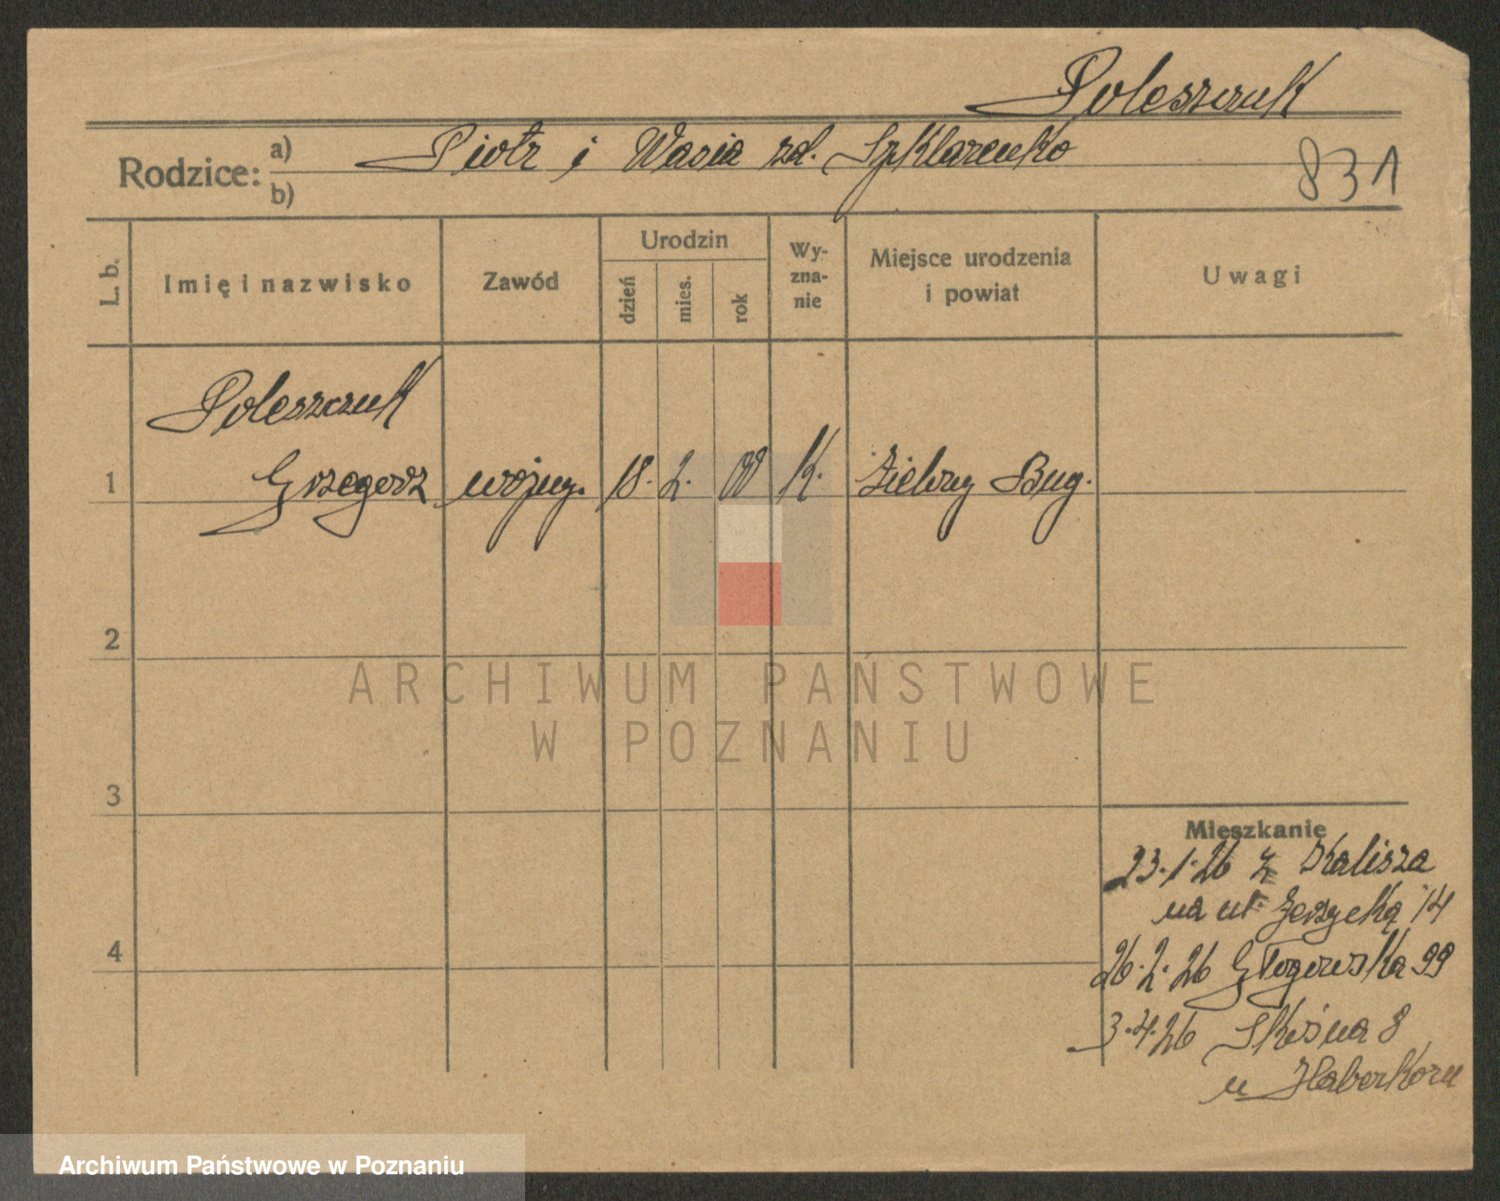 Poleszczuk
Rodzice: a) Piotr i Wasia zd. Szklarenko
b)
831
L. b.
Imię i nazwisko
Zawód
Urodzin
dzień
mies.
rok
Wy-
zna-
nie
Miejsce urodzenia
i powiat
Uwagi
Poleszczuk
1 Grzegorz 18. 2. 00 K. Bug.
2
3
4
ARCHIWUM PAŃSTWOWE
W POZNANIU
Mieszkanie
23.1.26 z Kalisza
na ul. 14
26.2.26 Głogowska 99
3.4.26 Skośna 8
u Haberkorn
Archiwum Państwowe w Poznaniu